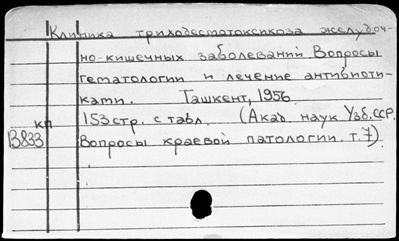 Клиника триходесматоксикоза желудоч-
но-кишечных заболеваний Вопросы
гематологии и лечение антибиоти-
ками. Ташкент, 1956
кп 153 стр. с табл. (Акад. наук Узб.ССР.
В833 Вопросы краевой патологии. т.7).